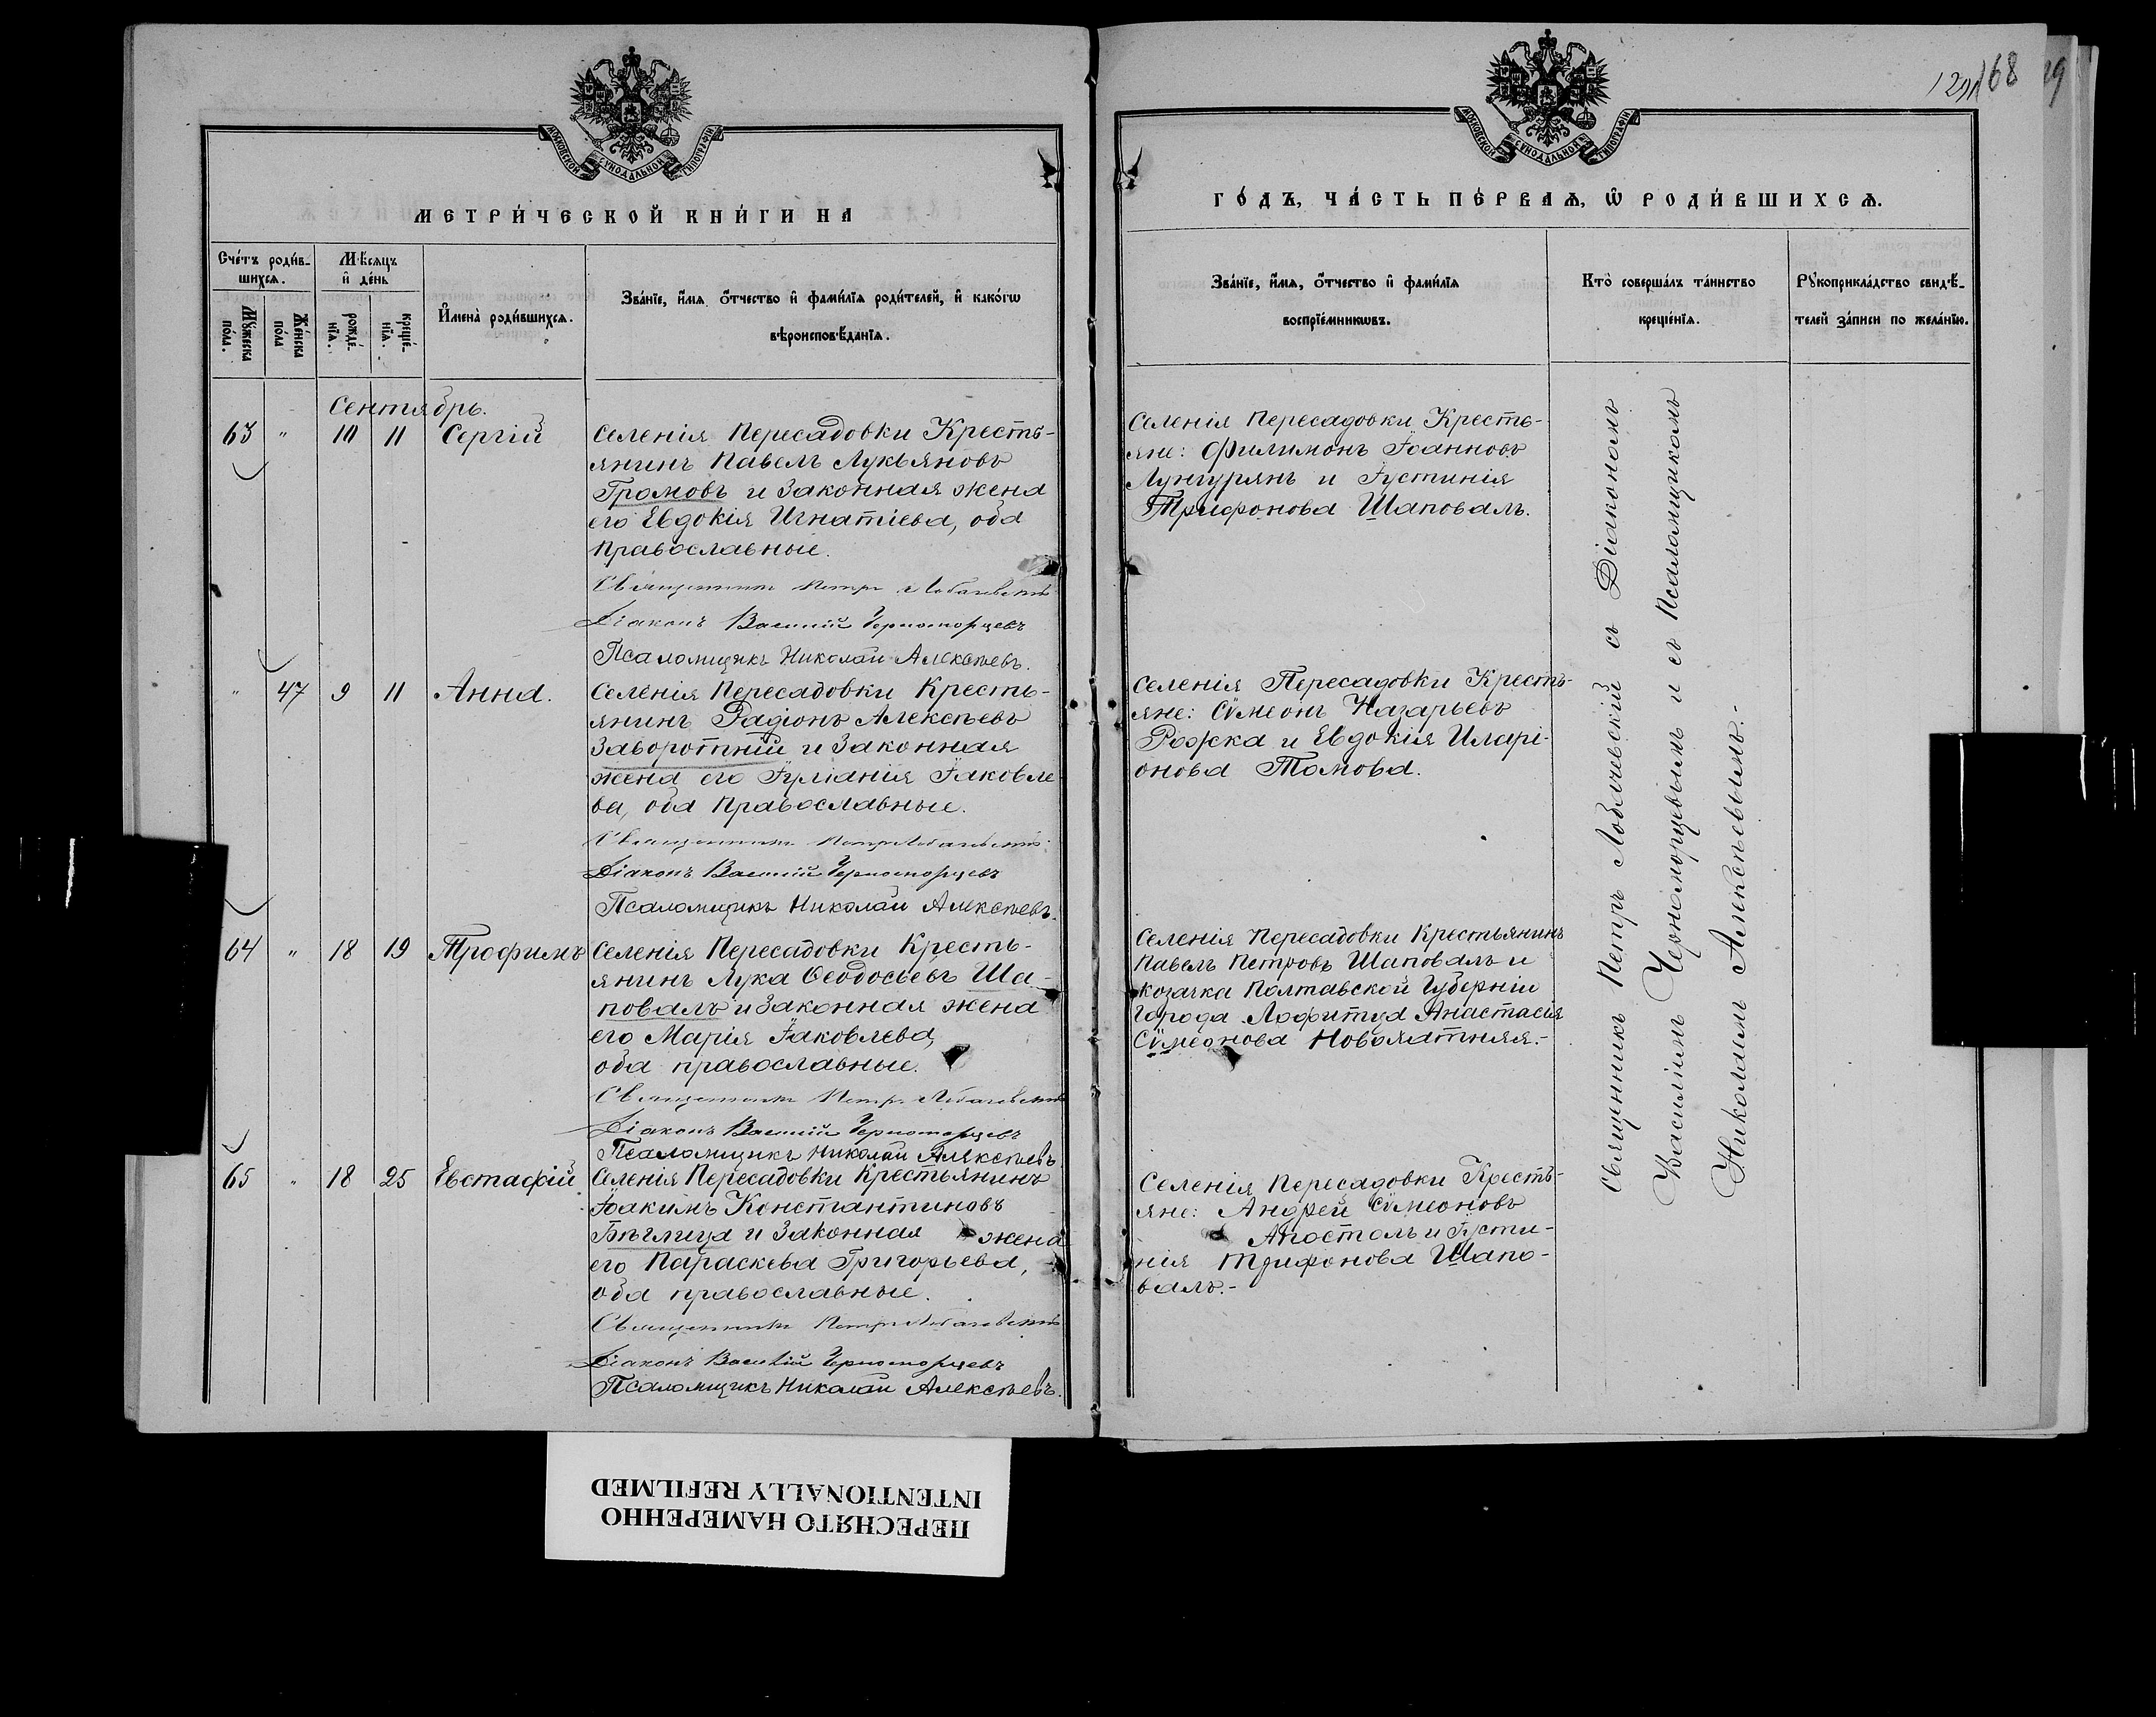 МОСКОВСКОЙ СѴНОДАЛЬНОЙ ТИПОГРАФІИ
МЕТРИ́ЧЕСКОЙ КНИ́ГИ НА
Сче́тъ роди́в-
шихсѧ.
Мꙋ́жеска
по́ла.
Же́нска
по́ла
Мѣ́сѧцъ
и҆ де́нь
рожде́-
нїѧ.
креще́-
нїѧ.
И҆мена̀ роди́вшихсѧ.
Зва́нїе, и҆́мѧ, ѻ҆́тчество и҆ фами́лїѧ роди́телей, и҆ како́гѡ
вѣроисповѣ́данїѧ.
Сентябрь.
63 " 10 11 Сергій
Селенія Пересадовки Кресть-
янинъ Павелъ Лукьяновъ
Громовъ и законная жена
его Евдокія Игнатіева, оба
православные.
Священникъ Петръ Лобачевскій
Діаконъ Василій Черноморцевъ
Псаломщикъ Николай Алексѣевъ.
" 47 9 11 Анна.
Селенія Пересадовки Кресть-
янинъ Радіонъ Алексѣевъ
Заворотній и законная
жена его Іуліанія Іаковле-
ва, оба православные.
Священникъ Петръ Лобачевскій
Діаконъ Василій Черноморцевъ
Псаломщикъ Николай Алексѣевъ.
64 " 18 19 Трофимъ
Селенія Пересадовки Кресть-
янинъ Лука Ѳеодосьевъ Ша-
повалъ и законная жена
его Марія Іаковлева,
оба православные.
Священникъ Петръ Лобачевскій
Діаконъ Василій Черноморцевъ
Псаломщикъ Николай Алексѣевъ
65 " 18 25 Евстафій
Селенія Пересадовки Крестьянинъ
Іоакимъ Константиновъ
Бѣглица и законная жена
его Параскева Григорьева,
оба православные.
Священникъ Петръ Лобачевскій
Діаконъ Василій Черноморцевъ
Псаломщикъ Николай Алексѣевъ.
168
МОСКОВСКОЙ СѴНОДАЛЬНОЙ ТИПОГРАФІИ
ГО́ДЪ, ЧА́СТЬ ПЕ́РВАѦ, Ѽ РОДИ́ВШИХСѦ.
Зва́нїе, и҆́мѧ, ѻ҆́тчество и҆ фами́лїѧ
воспрїе́мникѡвъ.
Кто̀ соверша́лъ та́инство
креще́нїѧ.
Рꙋкоприкла́дство свидѣ́-
телей за́писи по жела́нїю.
Селенія Пересадовки Кресть-
яне: Филимонъ Іоанновъ
Лунгурянъ и Іустинія
Трифонова Шаповалъ.
Селенія Пересадовки Кресть-
яне: Сѵмеонъ Назарьевъ
Рожка и Евдокія Иларі-
онова Томова.
Селенія Пересадовки Крестьянинъ
Павелъ Петровъ Шаповалъ и
козачка Полтавской Губерніи
города Лофитца Анастасія
Сѵмеонова
Селенія Пересадовки Кресть-
яне: Андрей Сѵмеоновъ
Апостолъ и Іусти-
нія Трифонова Шапо-
валъ.-
Священникъ Петръ Лобачевскій съ Діакономъ
Василіемъ Черноморцевымъ и съ Псаломщикомъ
Николаемъ Алексѣевымъ.-
ПЕРЕСНЯТО НАМЕРЕННО
INTENTIONALLY REFILMED